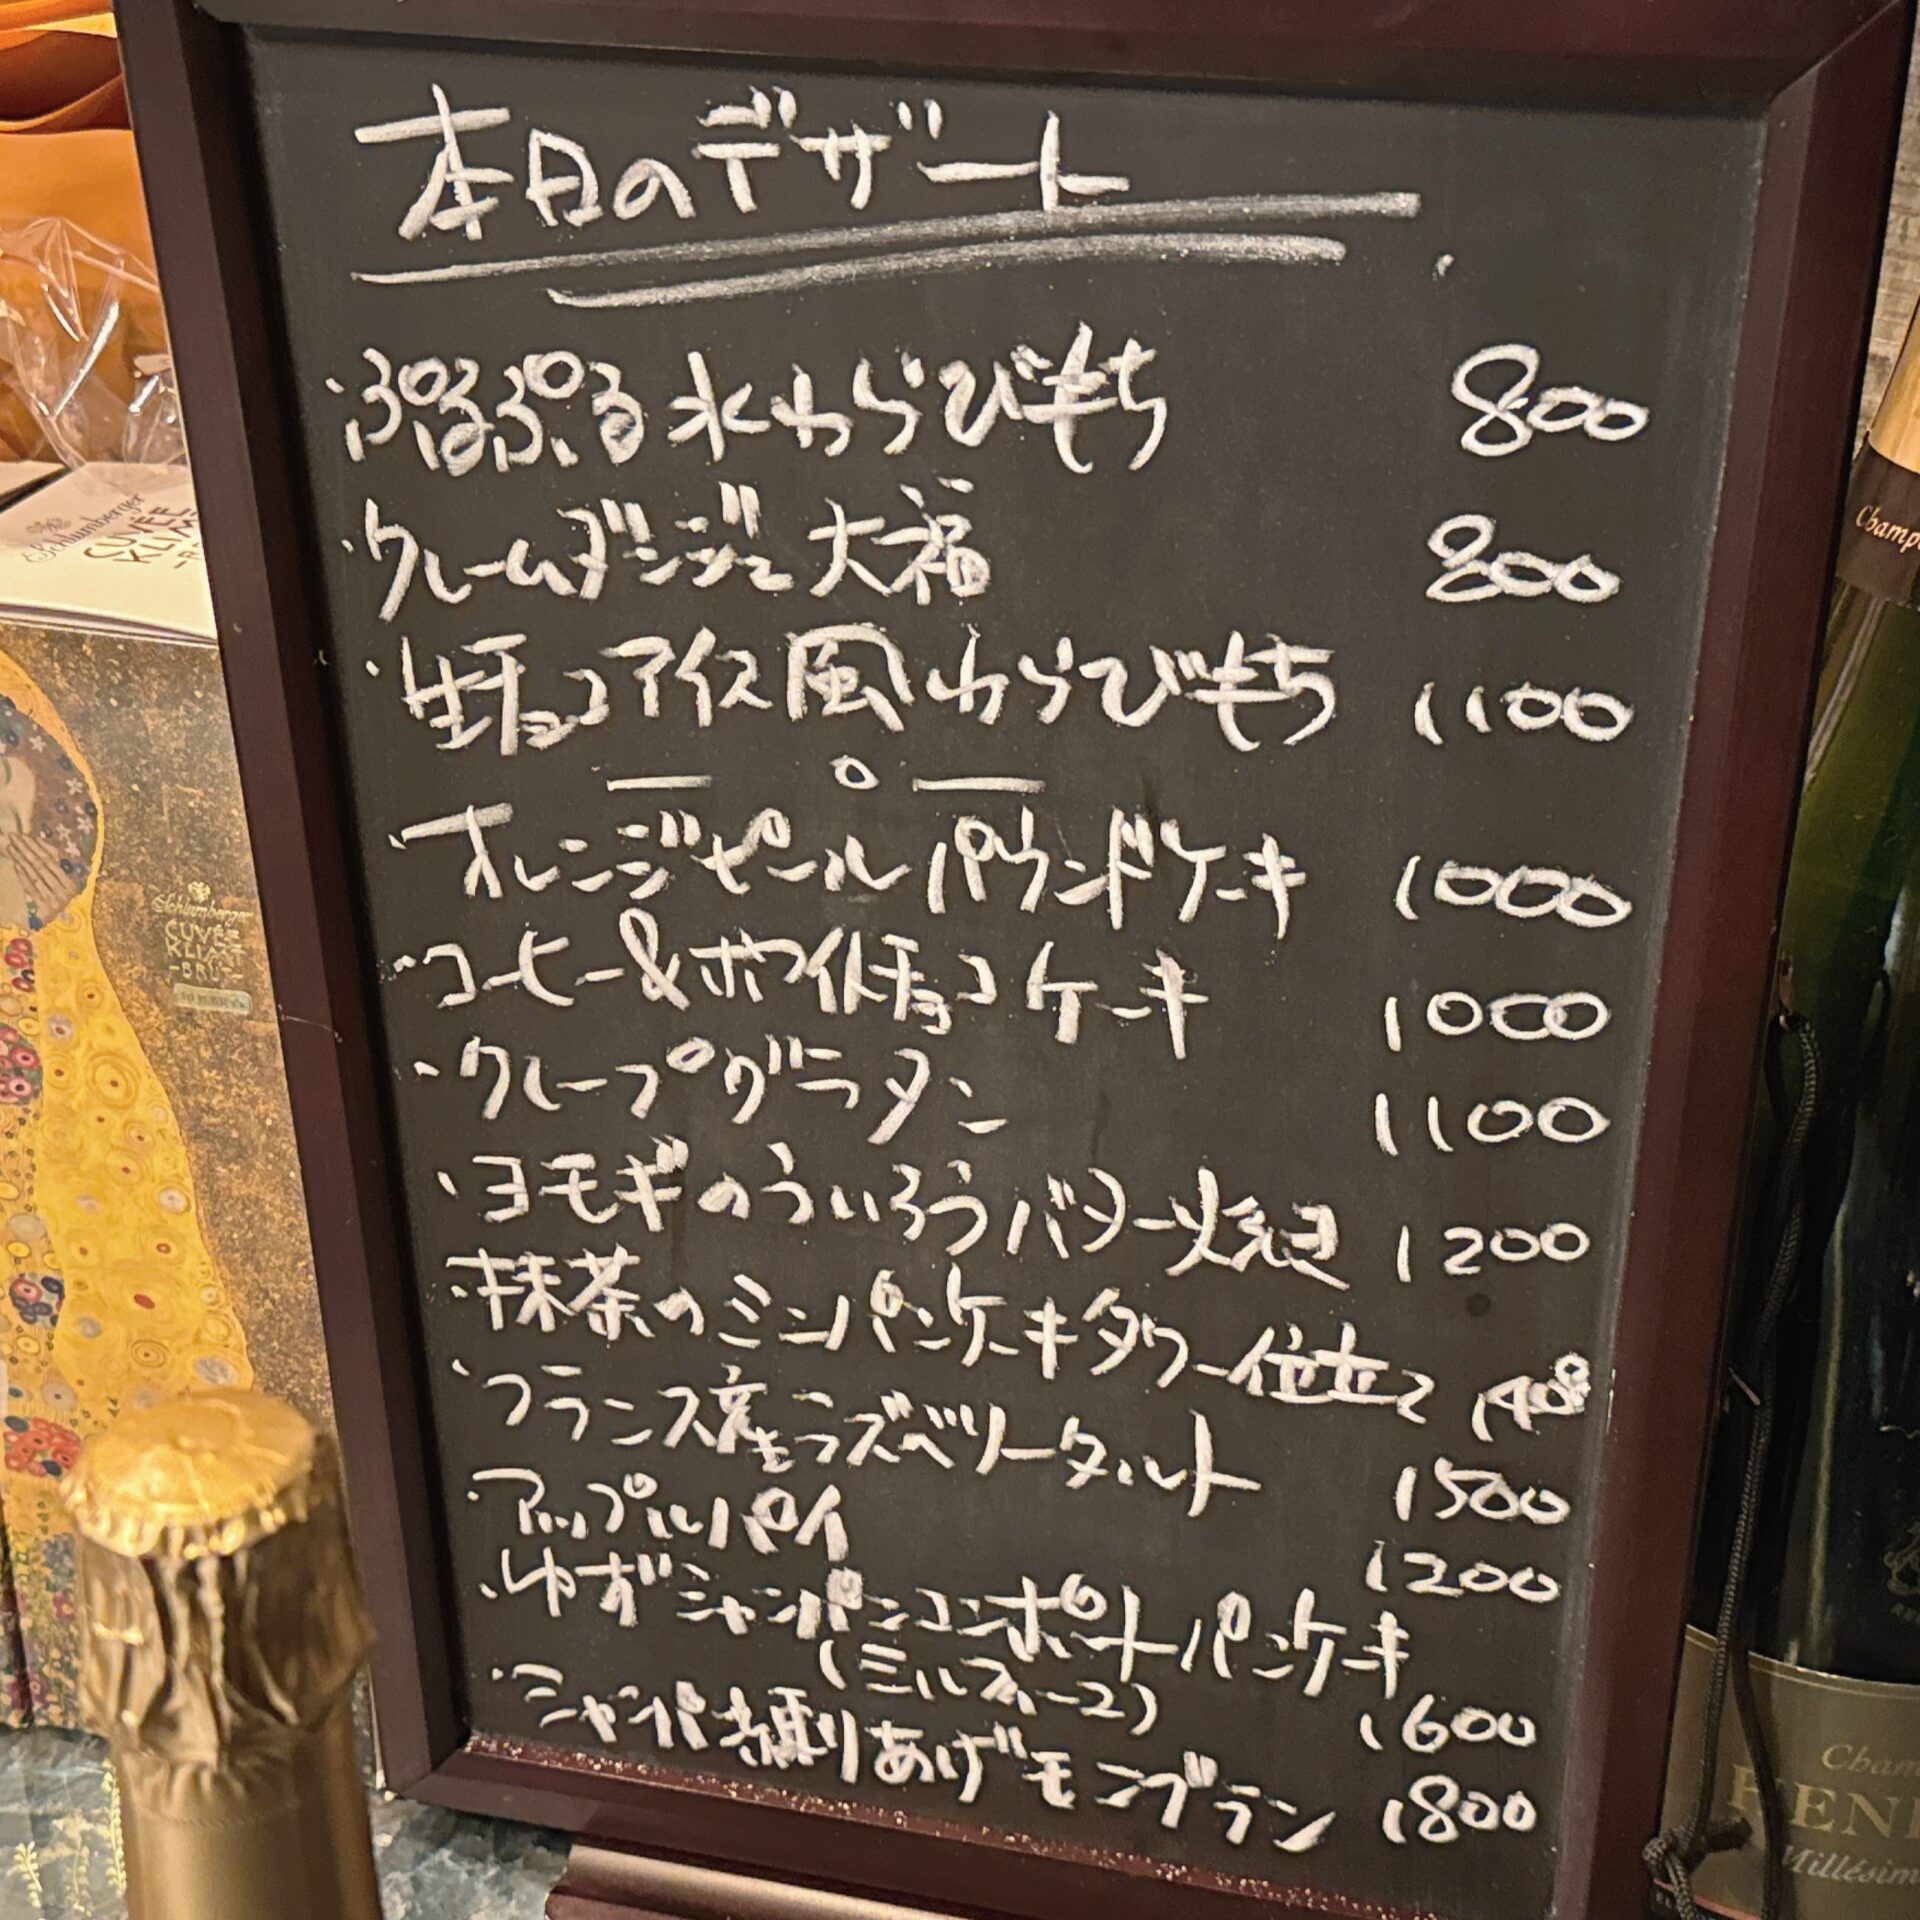 本日のデザート
・ぷるぷる水わらびもち 800
・クレームダンジュ大福 800
・生チョコアイス風わらびもち 1100
・オレンジピールパウンドケーキ 1000
・コーヒー&ホワイトチョコケーキ 1000
・クレープグラタン 1100
・ヨモギのういろうバター焼き 1200
・抹茶のミニパンケーキタワー仕立て 1400
・フランス産ラズベリータルト 1500
・アップルパイ 1200
・ゆずシャンパンコンポートパンケーキ
(ミルフィーユ) 1600
・シャンパ練りあげモンブラン 1800
Schlumberger
CUVÉE
KLIMT
Schlumberger
CUVÉE
KLIMT
-BRUT-
Champ
Cham
HENR
Millésim